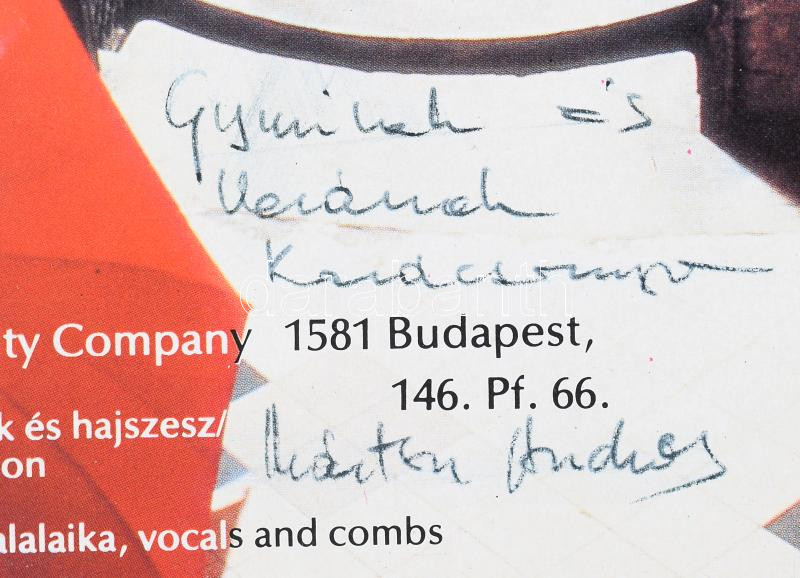 Gyurinak és
Verának
Karácsonyra
darabanth
ty Company 1581 Budapest,
146. Pf. 66.
k és hajszesz/
on
Márton András
alalaika, vocals and combs